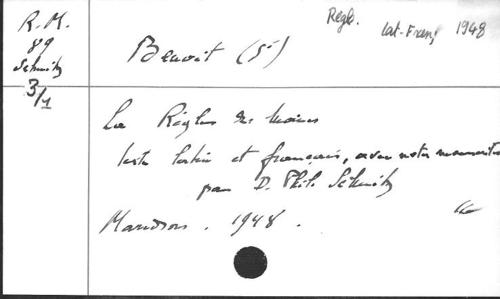 R.M.
89
Schmitz
3/1
Règle. Lat-Franç 1948
Benoit (St)
La Règle des Moines
texte latin et français, avec notes
par D. Phil. Schmitz
Maredsous. 1948.